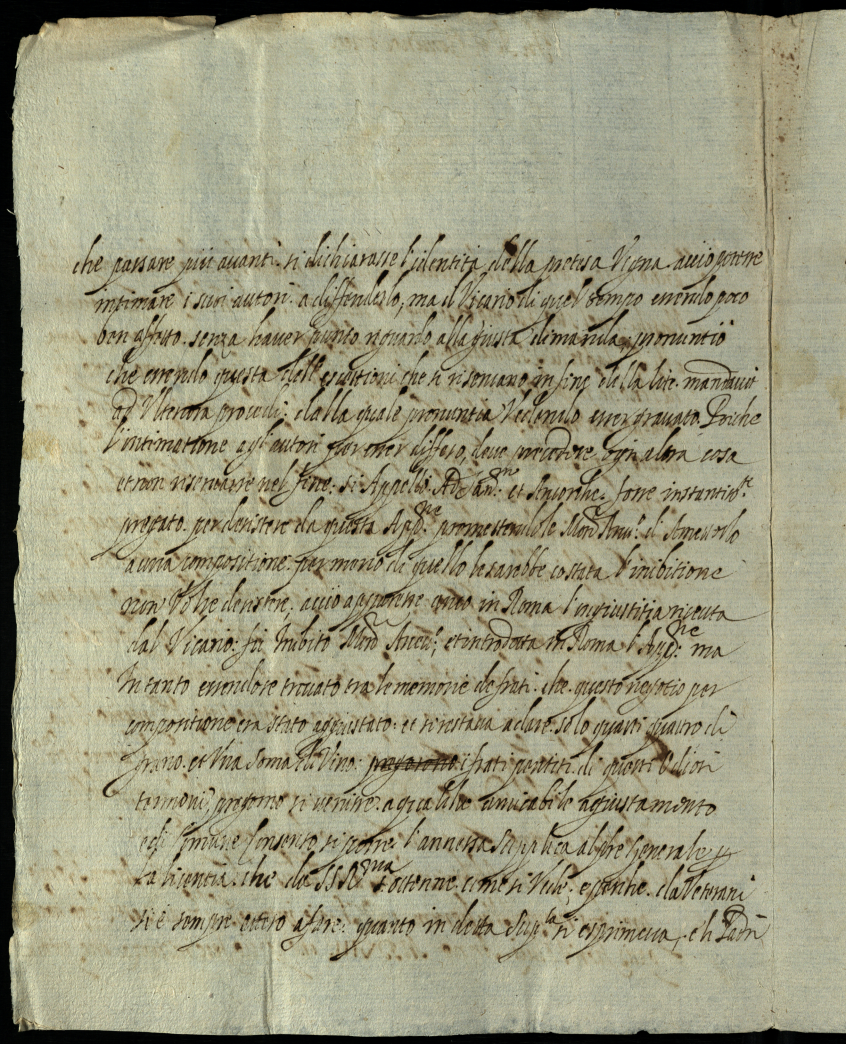 che passare più avanti si dichiarasse l'identità della pretesa Vigna acciò potere
intimare i suoi autori a diffenderlo, ma il Vicario di quel tempo essendo poco
ben affetto senza haver punto riguardo alla giusta dimanda pronuntiò
che essendo questa dell' che si risoneano in fine della lite mandavit
ad Ulteriora procedi: dalla quale pronuntia Vedendo esser gravato Poiche
l'intimatione agl'autori per esser diffeso, deve precedere ogn'altra cosa
et non riservarse nel fine: si Appellò et Ancorche fosse instantiss.te
pregato per desistere da questa App.ne promettendole Mons.r d'Amezzarlo
a una compositione per meno di quello li sarebbe costata l'inibitione
non Volse desistere, acciò apparesse anco in Roma l'ingiustitia riceuta
dal Vicario: fu Inibito Mons.r et introdotta in Roma l'App.ne ma
In tanto essendose trovato tra le memorie de frati che questo negotio per
compositione era stato aggiustato et si restava a dare solo quarti quattro di
grano et Una Soma di Vino: i frati pentiti di questi
termini, pregorno si venire a qualche amicabile agiustamento
e di Comune Consenso si porse l'annessa Supplica al Pre Generale p
la licentia che da SS R.ma s'ottenne come si Vede; e perche da Veterani
si è sempre atteso a fare quanto in detta Sup.ca si esprimeva, e li Padri